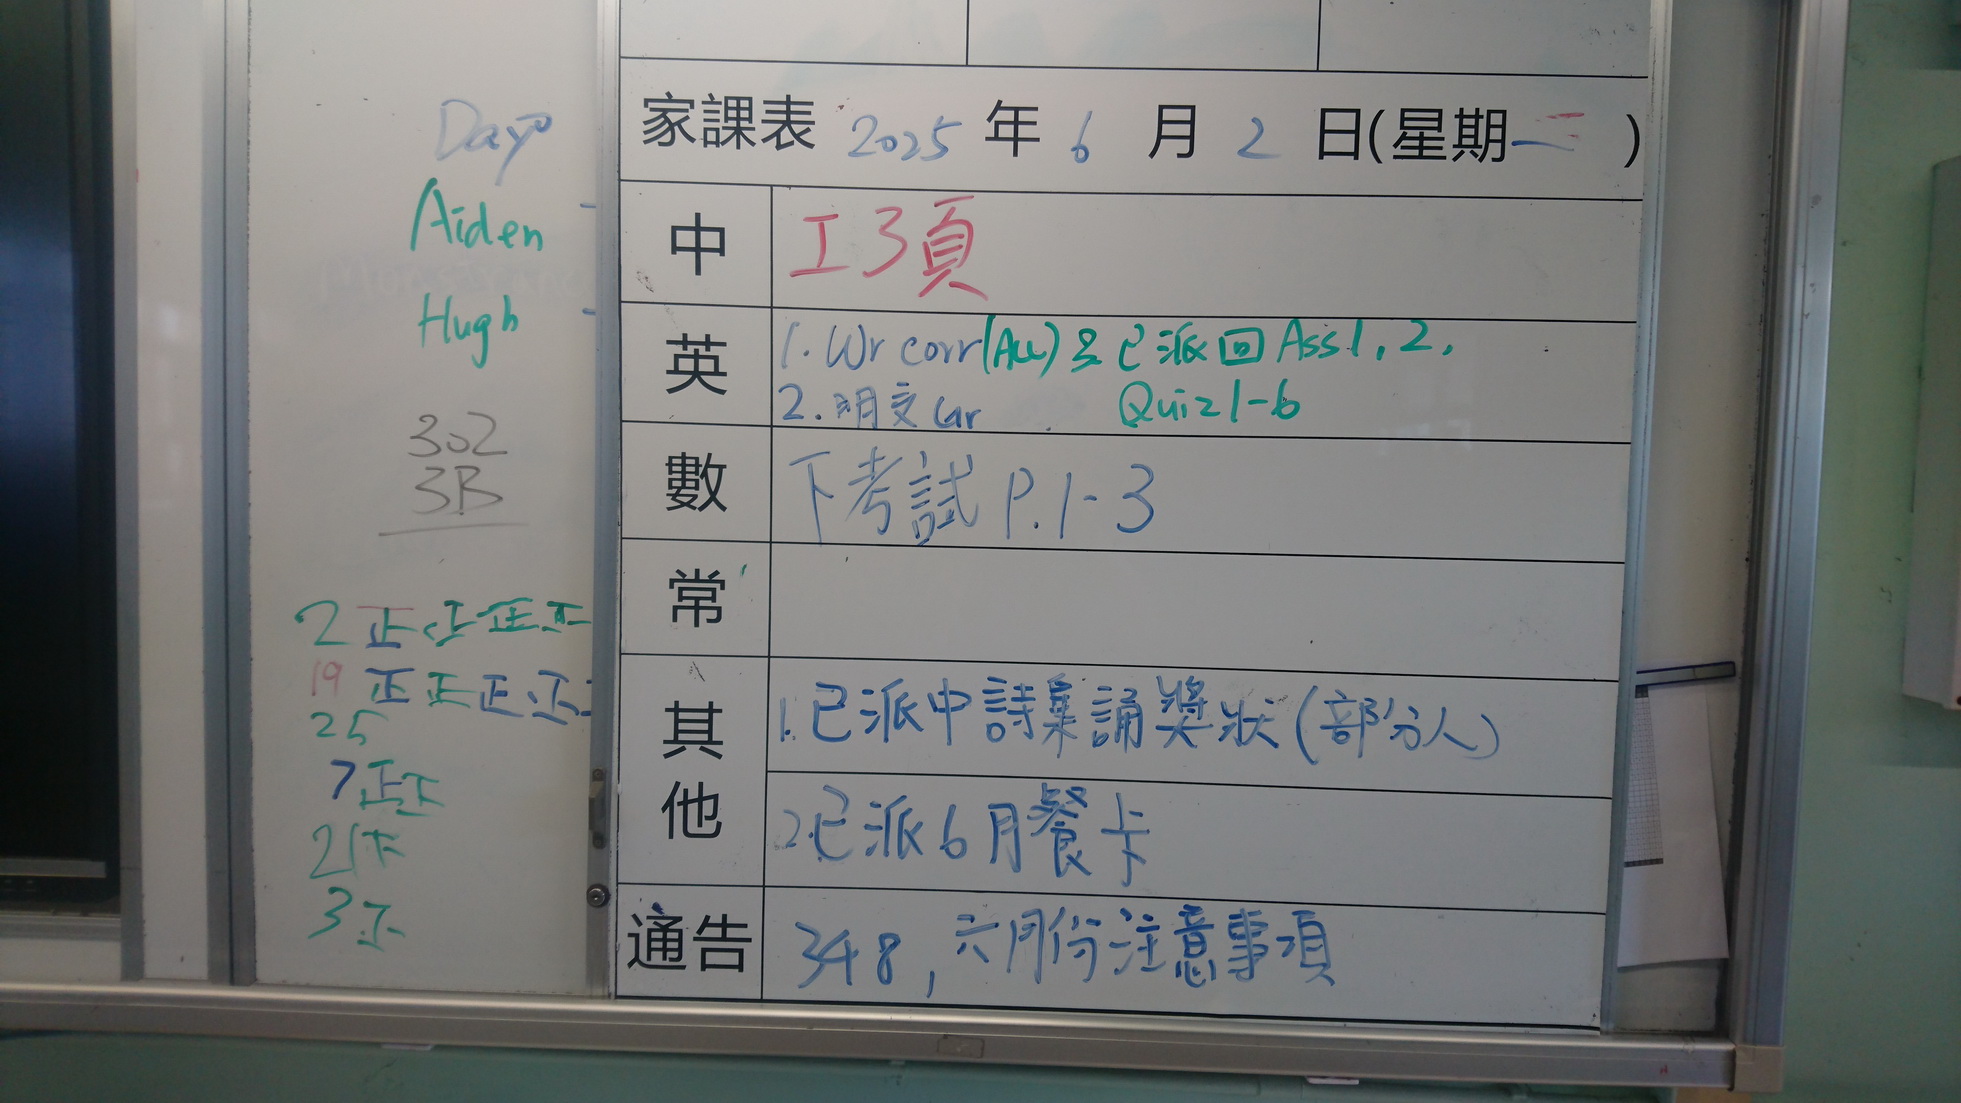 Day
Aiden
Hugh
302
3B
2 正 正 正 正
19 正 正 正 正
25
7 正 下
21
3
家課表 2025 年 6 月 2 日(星期一 )
中 工3頁
英 1. Wr corr(All) 已派回 Ass 1, 2,
2. 明文 Gr Quiz 1-6
數 下考試 P.1-3
常
其他 1. 已派中詩集誦獎狀(部分人)
2. 已派6月餐卡
通告 348, 六月份注意事項